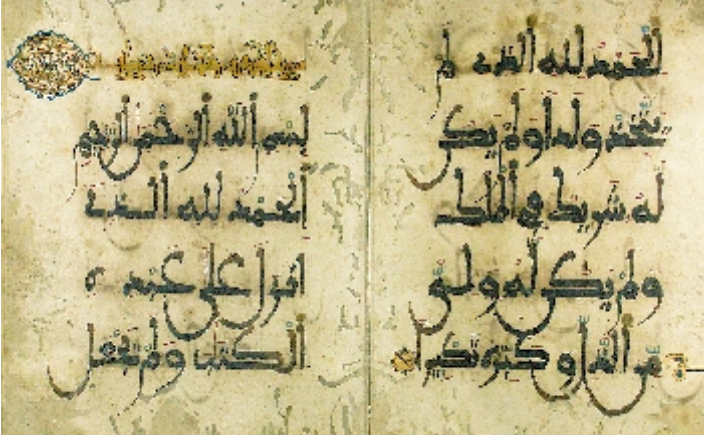 الحمد لله الذي لم
يتخذ ولدا ولم يكن
له شريك في الملك
ولم يكن له ولي
من الذل وكبره تكبيرا
بسم الله الرحمن الرحيم
الحمد لله الذي
انزل على عبده
الكتب ولم يجعل